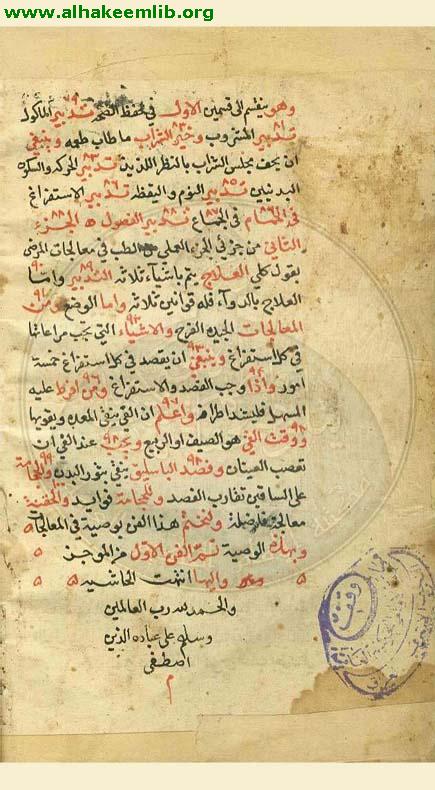 www.alhakeemlib.org
وهو ينقسم الى قسمين الاول في حفظ الصحة ٧٩ تدبير المأكول
تدبير ٨١ المشروب وخير ٨٣ الشراب ما طاب طعمه وينبغي
ان يحف مجلس الشراب بالنظر اللذيذ تدبير ٨٣ الحركة والسكون
البدنيين تدبير ٨٥ النوم واليقظة تدبير ٨٦ الاستفراغ
في الحمام ٨٦ في الجماع ٨٧ تدبير ٨٨ الفصول ٥ الجزء ٨٨
الثاني من جزئي الجزء العملي من الطب في معالجات المرض
نقول كلي العلاج يتم باشياء ثلاثة التدبير ٨٩ واما ٩٠
العلاج بالدواء فله قوانين ثلاثة واما الوضع ومن ٩٢
المعالجات الجيدة الفرح والاشياء ٩٣ التي تجب مراعاتها
في كل استفراغ وينبغي ٩٣ ان يقصد في كل استفراغ خمسة
امور واذا ٩٤ وجب الفصد والاستفراغ ومن ٩٦ افرط عليه
المسهل فليشد اطرافه واعلم ٩٧ ان القئ ينقي المعدة ويقويها
ووقت ٩٨ القئ هو الصيف او الربيع ويجب ٩٨ عند القئ ان
تعصب العينان وفصد ٩٨ الباسليق ينقي بثور البدن والحجامة ٩٩
على الساقين تقارب الفصد وللحجامة فوايد والحقنة
معالجة فاضلة ولنختم هذا الفن بوصية في المعالجات
وبهذه الوصية تم الفن الاول من الموجز ٥
٥ واليها انتهت الحاشية ٥ ٥
والحمد لله رب العالمين
وسلم على عباده الذين
اصطفى
م
وقف